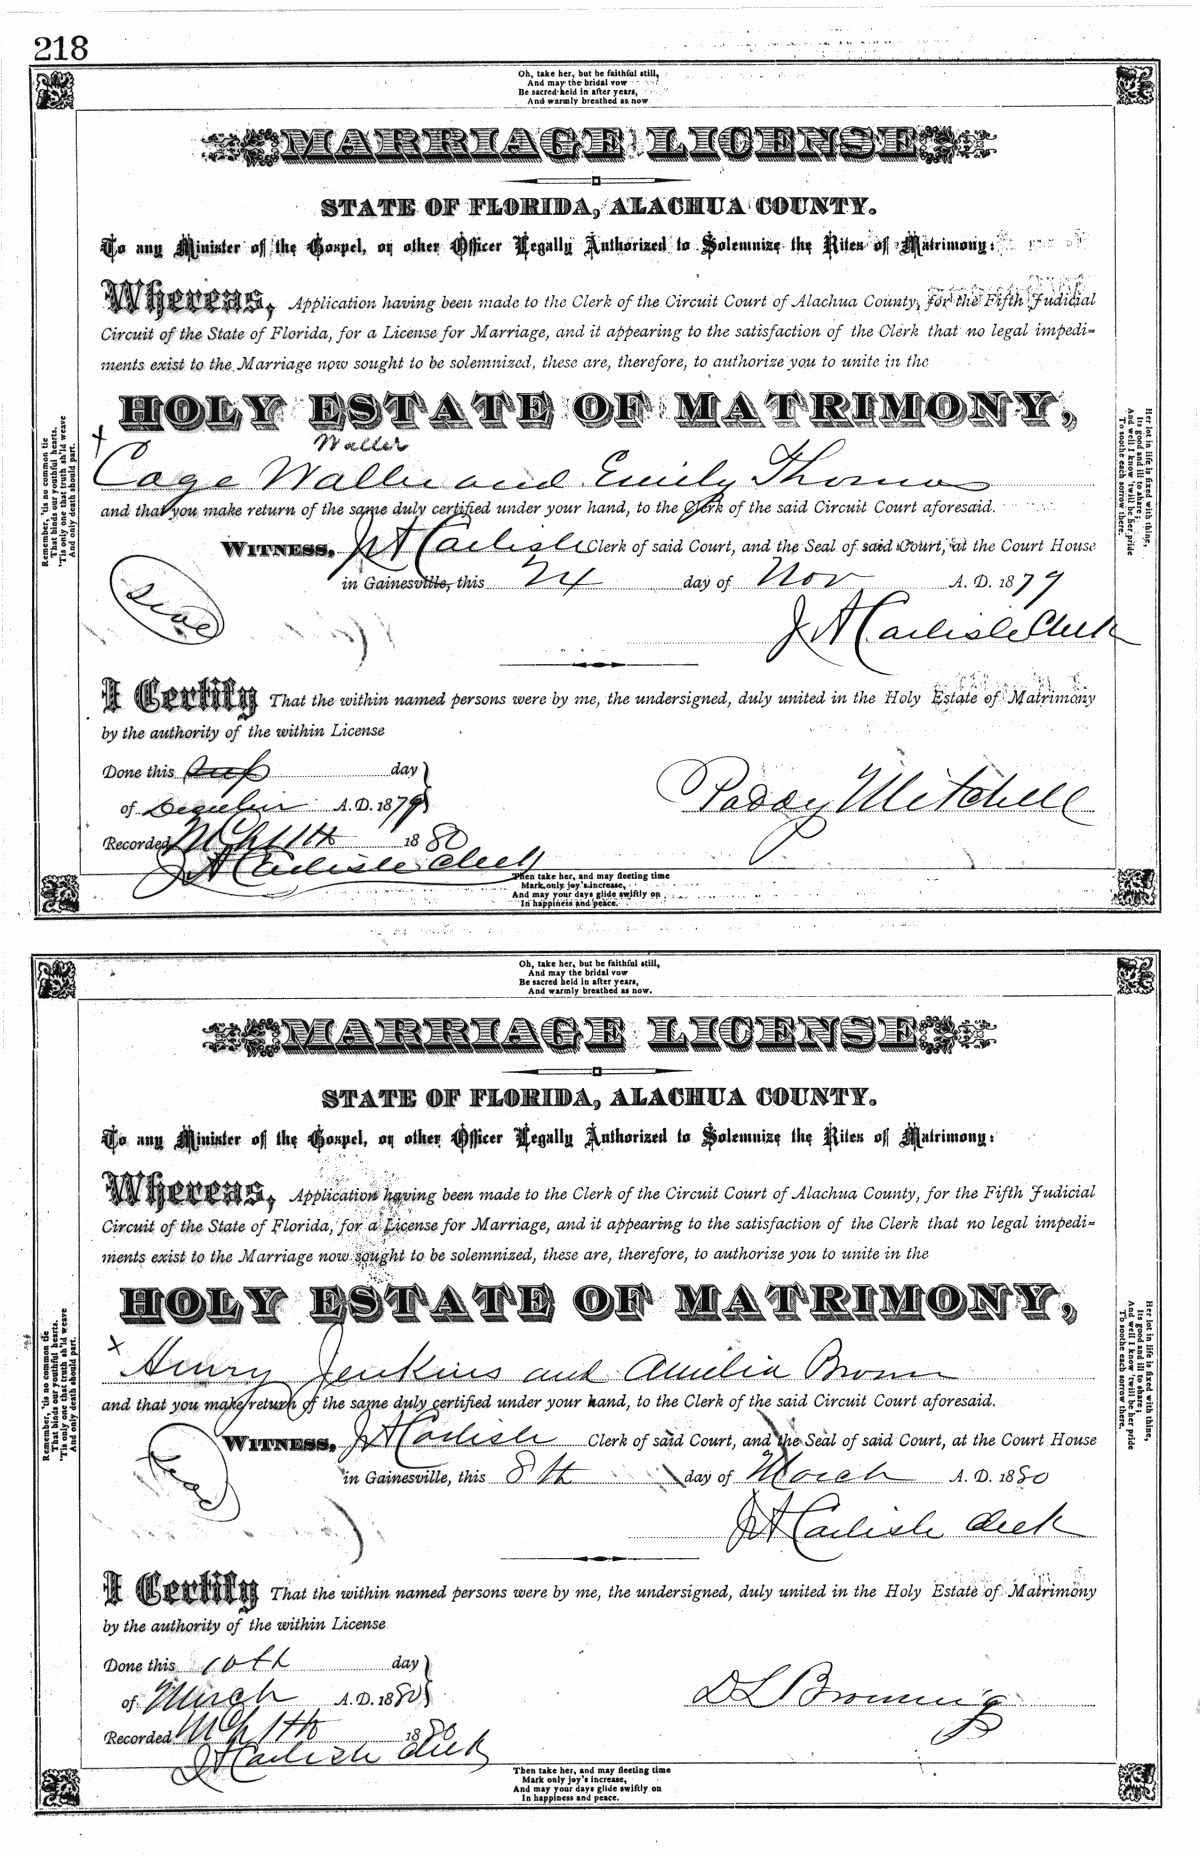 218
Oh, take her, but be faithful still,
And may the bridal vow
Be sacred held in after years,
And warmly breathed as now
MARRIAGE LICENSE
STATE OF FLORIDA, ALACHUA COUNTY.
To any Minister of the Gospel, or other Officer Legally Authorized to Solemnize the Rites of Matrimony:
Whereas, Application having been made to the Clerk of the Circuit Court of Alachua County, for the Fifth Judicial
Circuit of the State of Florida, for a License for Marriage, and it appearing to the satisfaction of the Clerk that no legal impedi-
ments exist to the Marriage now sought to be solemnized, these are, therefore, to authorize you to unite in the
HOLY ESTATE OF MATRIMONY,
Waller
x Cage Waller and Emily Thomas
and that you make return of the same duly certified under your hand, to the Clerk of the said Circuit Court aforesaid.
WITNESS, J A Carlisle Clerk of said Court, and the Seal of said Court, at the Court House
in Gainesville, this 24 day of Nov A. D. 1879
Seal
J A Carlisle Clerk
I Certify That the within named persons were by me, the undersigned, duly united in the Holy Estate of Matrimony
by the authority of the within License
Done this day
of December A. D. 1879
Paddy Mitchell
Recorded Mch 11th 1880
J A Carlisle Clerk
Then take her, and may fleeting time
Mark only joy's increase,
And may your days glide swiftly on
In happiness and peace.
Remember, 'tis no common tie
That binds our youthful hearts,
'Tis only one that truth sh'ld weave
And only death should part.
Her lot in life is fixed with thine,
Its good and ill to share;
And well I know 'twill be her pride
To soothe each sorrow there.
Oh, take her, but be faithful still,
And may the bridal vow
Be sacred held in after years,
And warmly breathed as now.
MARRIAGE LICENSE
STATE OF FLORIDA, ALACHUA COUNTY.
To any Minister of the Gospel, or other Officer Legally Authorized to Solemnize the Rites of Matrimony:
Whereas, Application having been made to the Clerk of the Circuit Court of Alachua County, for the Fifth Judicial
Circuit of the State of Florida, for a License for Marriage, and it appearing to the satisfaction of the Clerk that no legal impedi-
ments exist to the Marriage now sought to be solemnized, these are, therefore, to authorize you to unite in the
HOLY ESTATE OF MATRIMONY,
x Henry Jenkins and Amelia Brown
and that you make return of the same duly certified under your hand, to the Clerk of the said Circuit Court aforesaid.
WITNESS, J A Carlisle Clerk of said Court, and the Seal of said Court, at the Court House
in Gainesville, this 8th day of March A. D. 1880
Seal
J A Carlisle Clerk
I Certify That the within named persons were by me, the undersigned, duly united in the Holy Estate of Matrimony
by the authority of the within License
Done this 10th day
of March A. D. 1880
D L Browning
Recorded Mch 11th 1880
J A Carlisle Clerk
Then take her, and may fleeting time
Mark only joy's increase,
And may your days glide swiftly on
In happiness and peace.
Remember, 'tis no common tie
That binds our youthful hearts,
'Tis only one that truth sh'ld weave
And only death should part.
Her lot in life is fixed with thine,
Its good and ill to share;
And well I know 'twill be her pride
To soothe each sorrow there.